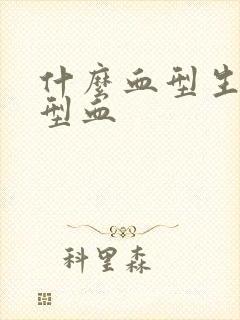 什麼血型生
型血
科里森